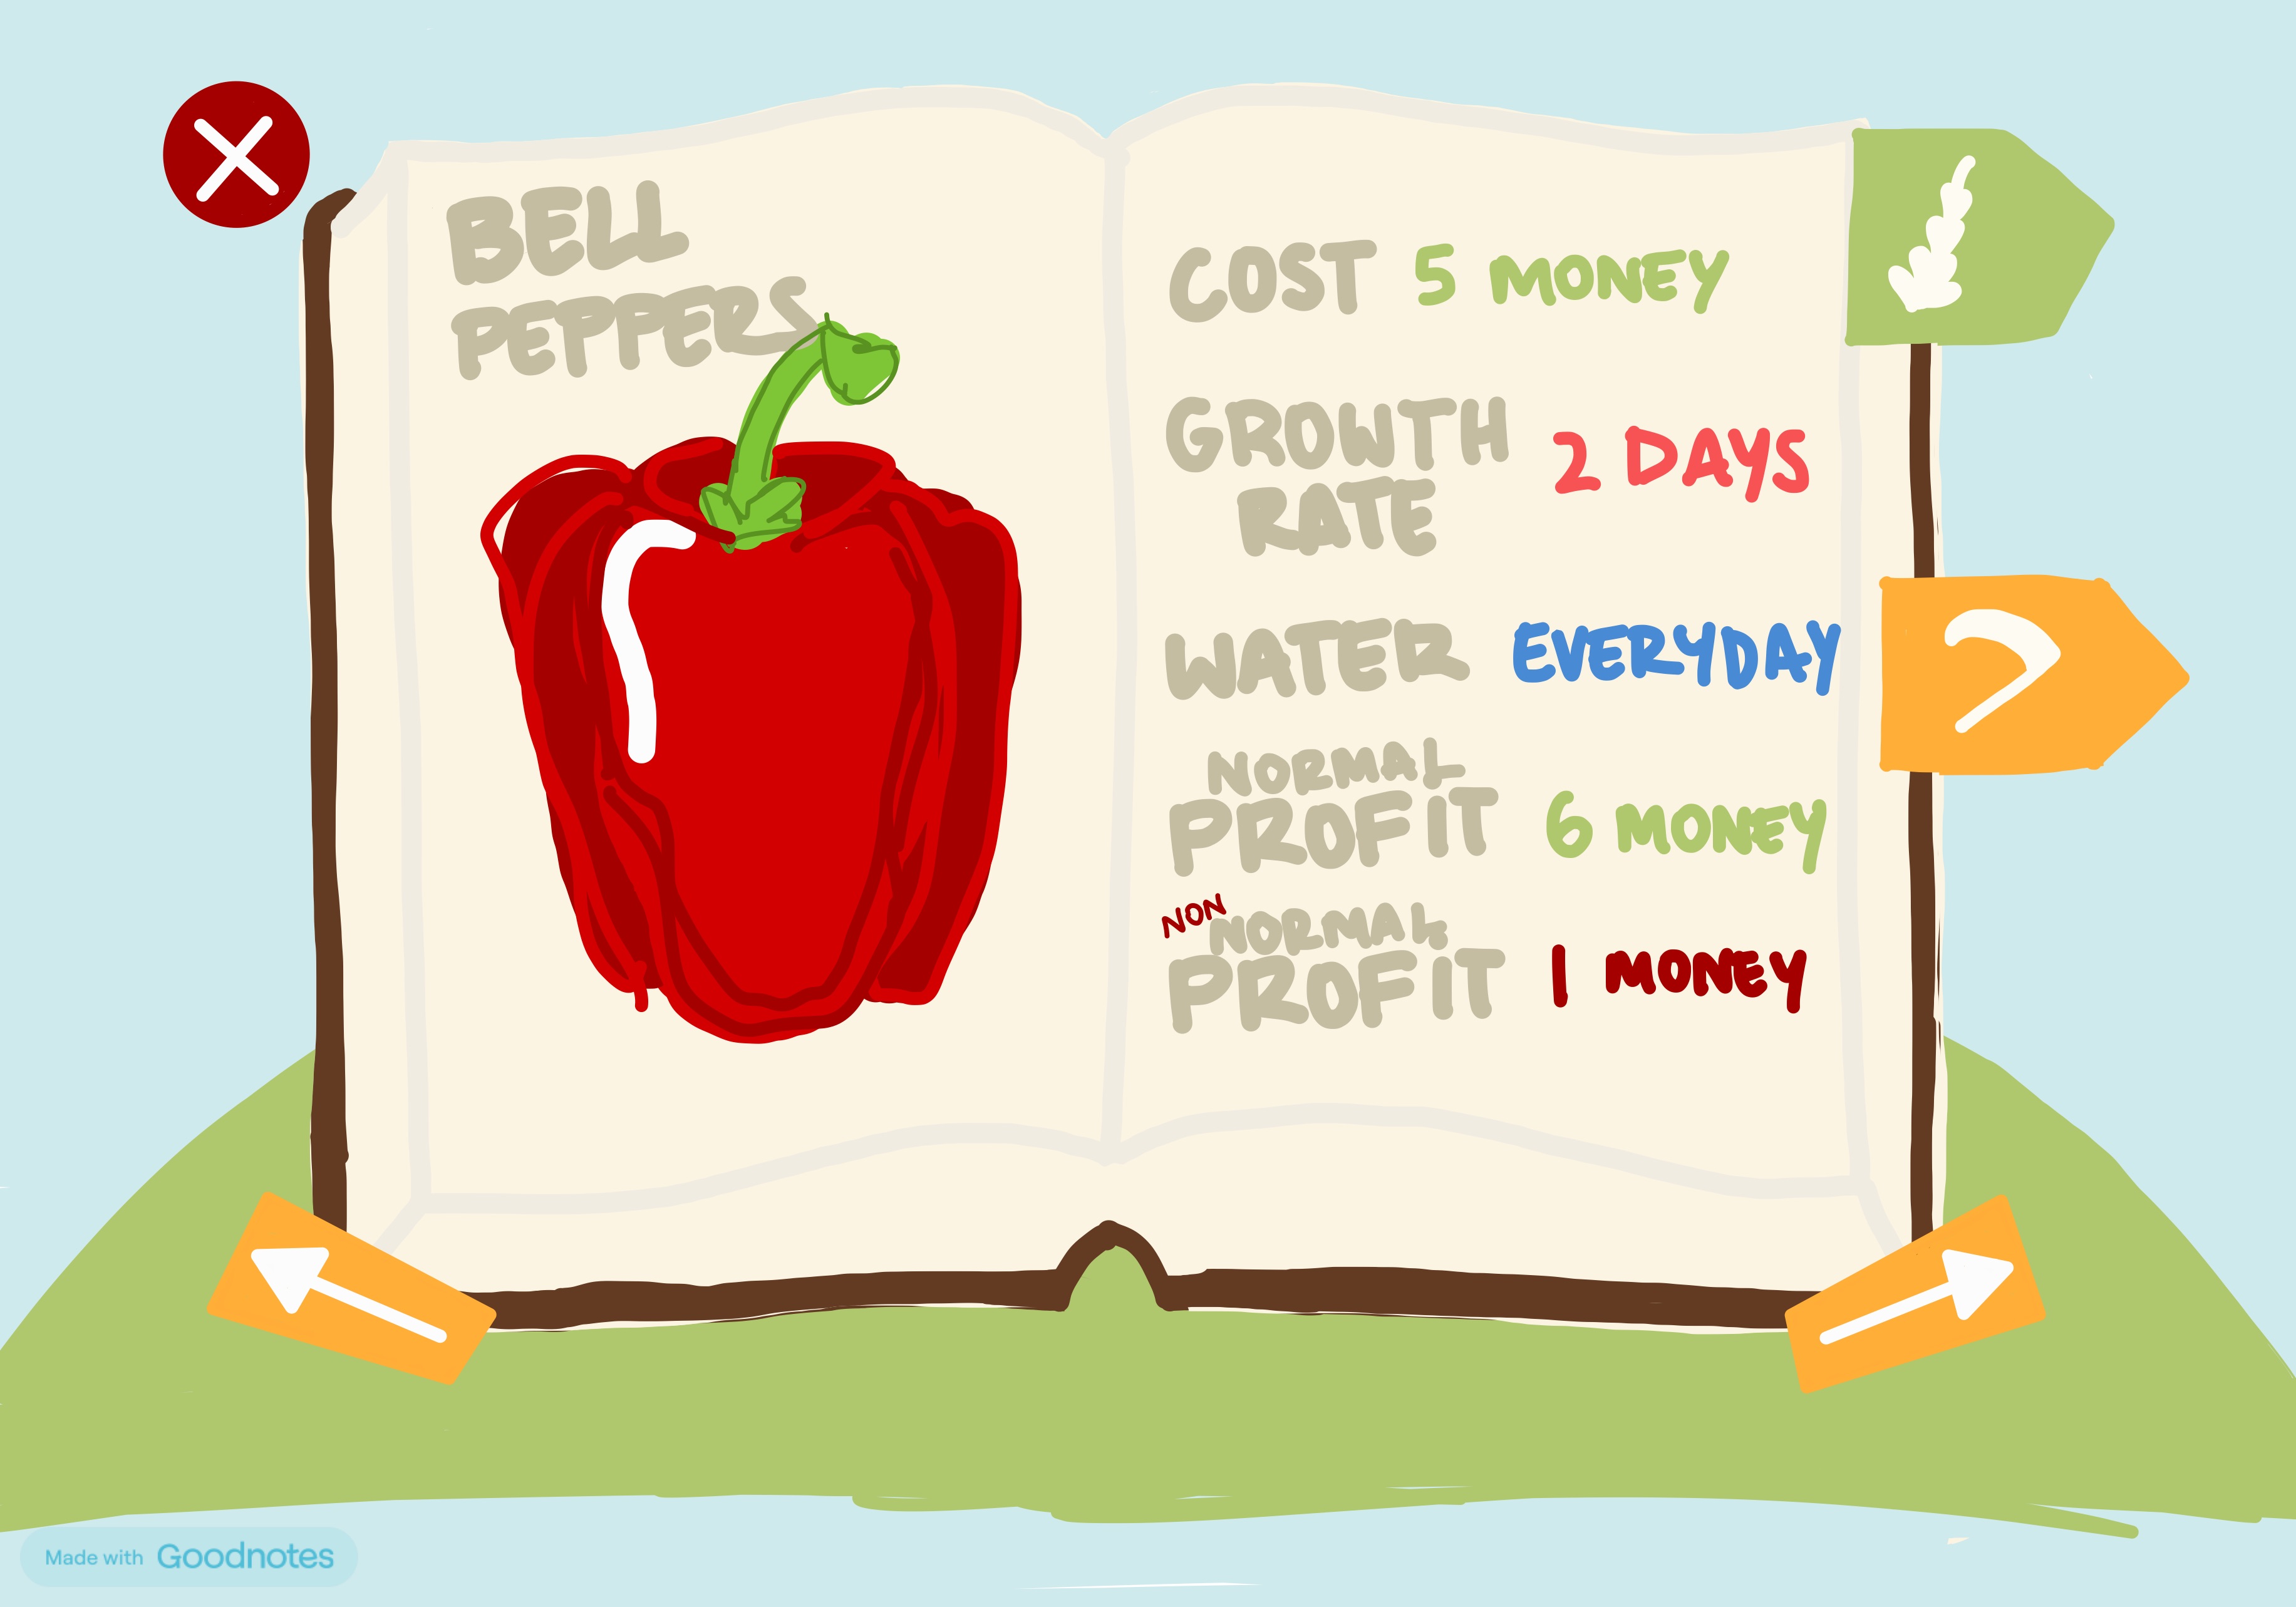 BELL
PEPPERS
COST 5 MONEY
GROWTH
RATE 2 DAYS
WATER EVERYDAY
NORMAL
PROFIT 6 MONEY
NON NORMAL
PROFIT 1 MONEY
Made with Goodnotes